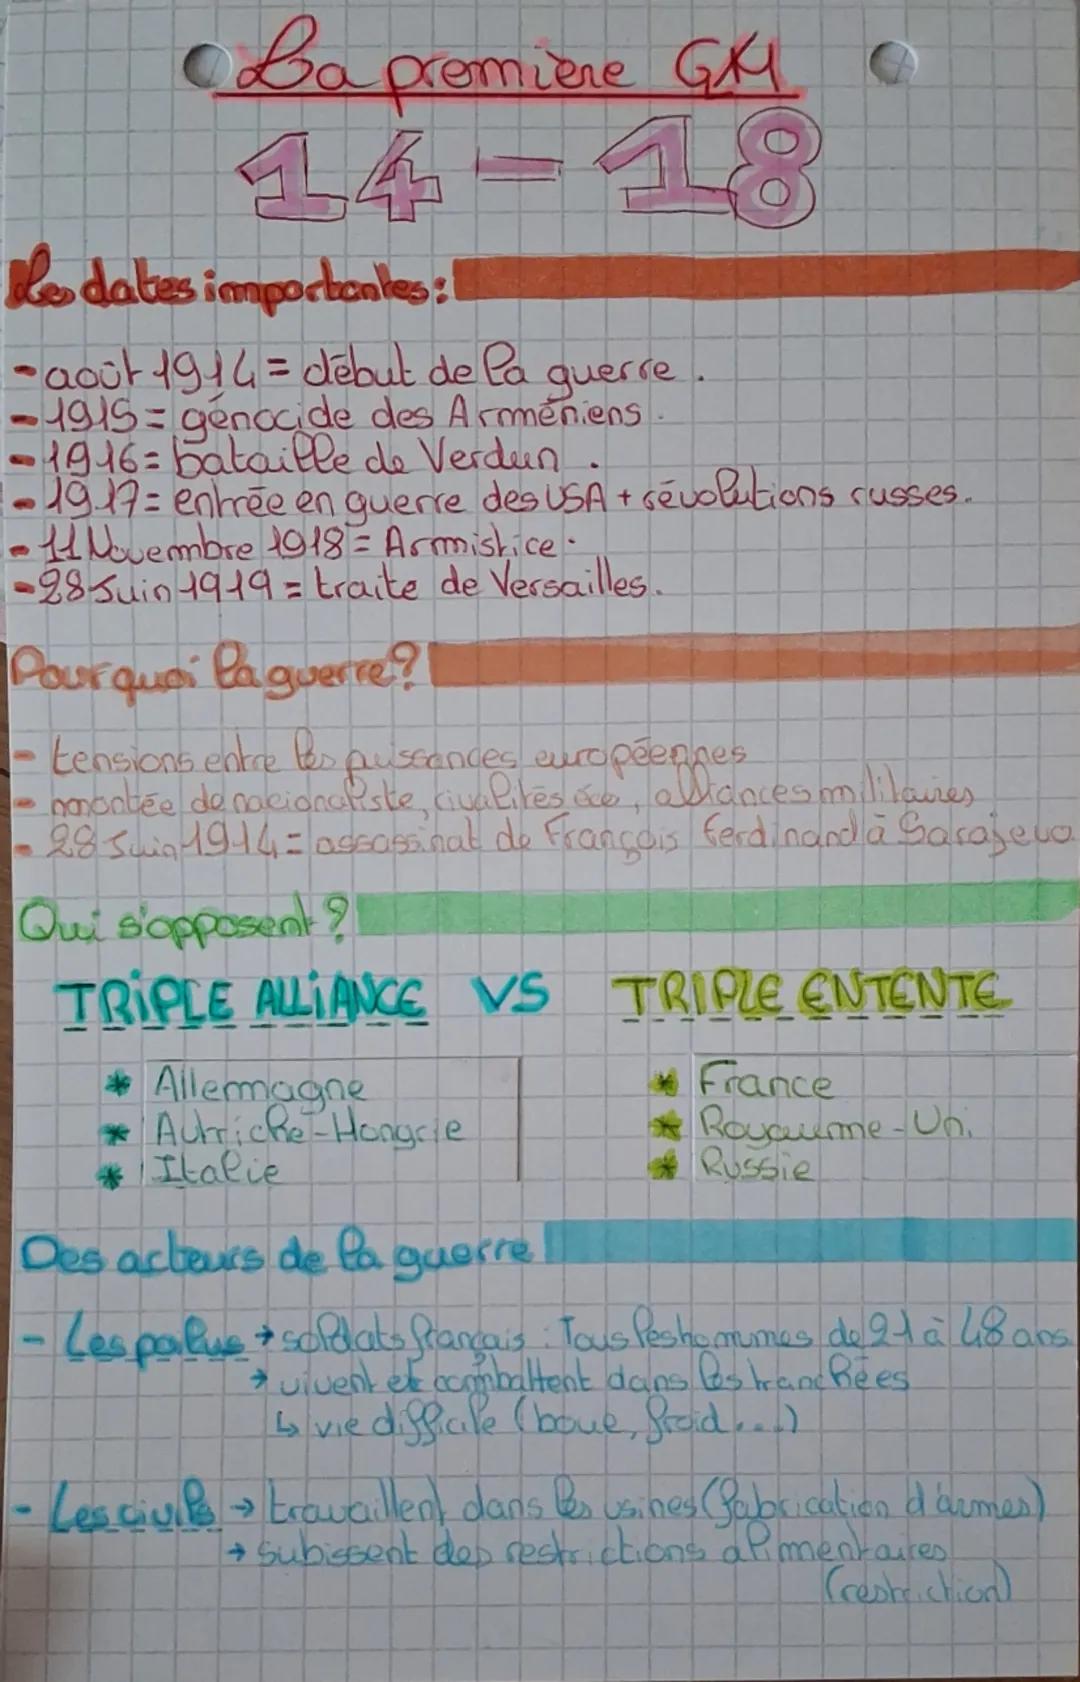 La première GM
14-18
Les dates importantes :
- août 1914 = début de la guerre.
- 1915 = génocide des Arméniens.
- 1916 = bataille de Verdun.
- 1917 = entrée en guerre des USA + révolutions russes.
- 11 Novembre 1918 = Armistice.
- 28 Juin 1919 = traite de Versailles.
Pourquoi la guerre ?
- tensions entre les puissances européennes
- montée de nacionaliste, rivalités éco, alliances militaires
- 28 Juin 1914 = assassinat de François ferdinand à Sarajevo.
Qui s'opposent ?
TRIPLE ALLIANCE VS TRIPLE ENTENTE
* Allemagne * France
* Autriche-Hongrie * Royaume-Uni
* Italie * Russie
Des acteurs de la guerre
- Les poilus → soldats français : Tous les hommes de 21 à 48 ans
→ vivent et combattent dans les tranchées
↳ vie difficile (boue, froid...)
- Les civils → travaillent dans les usines (fabrication d'armes)
→ subissent des restrictions alimentaires
(restriction)